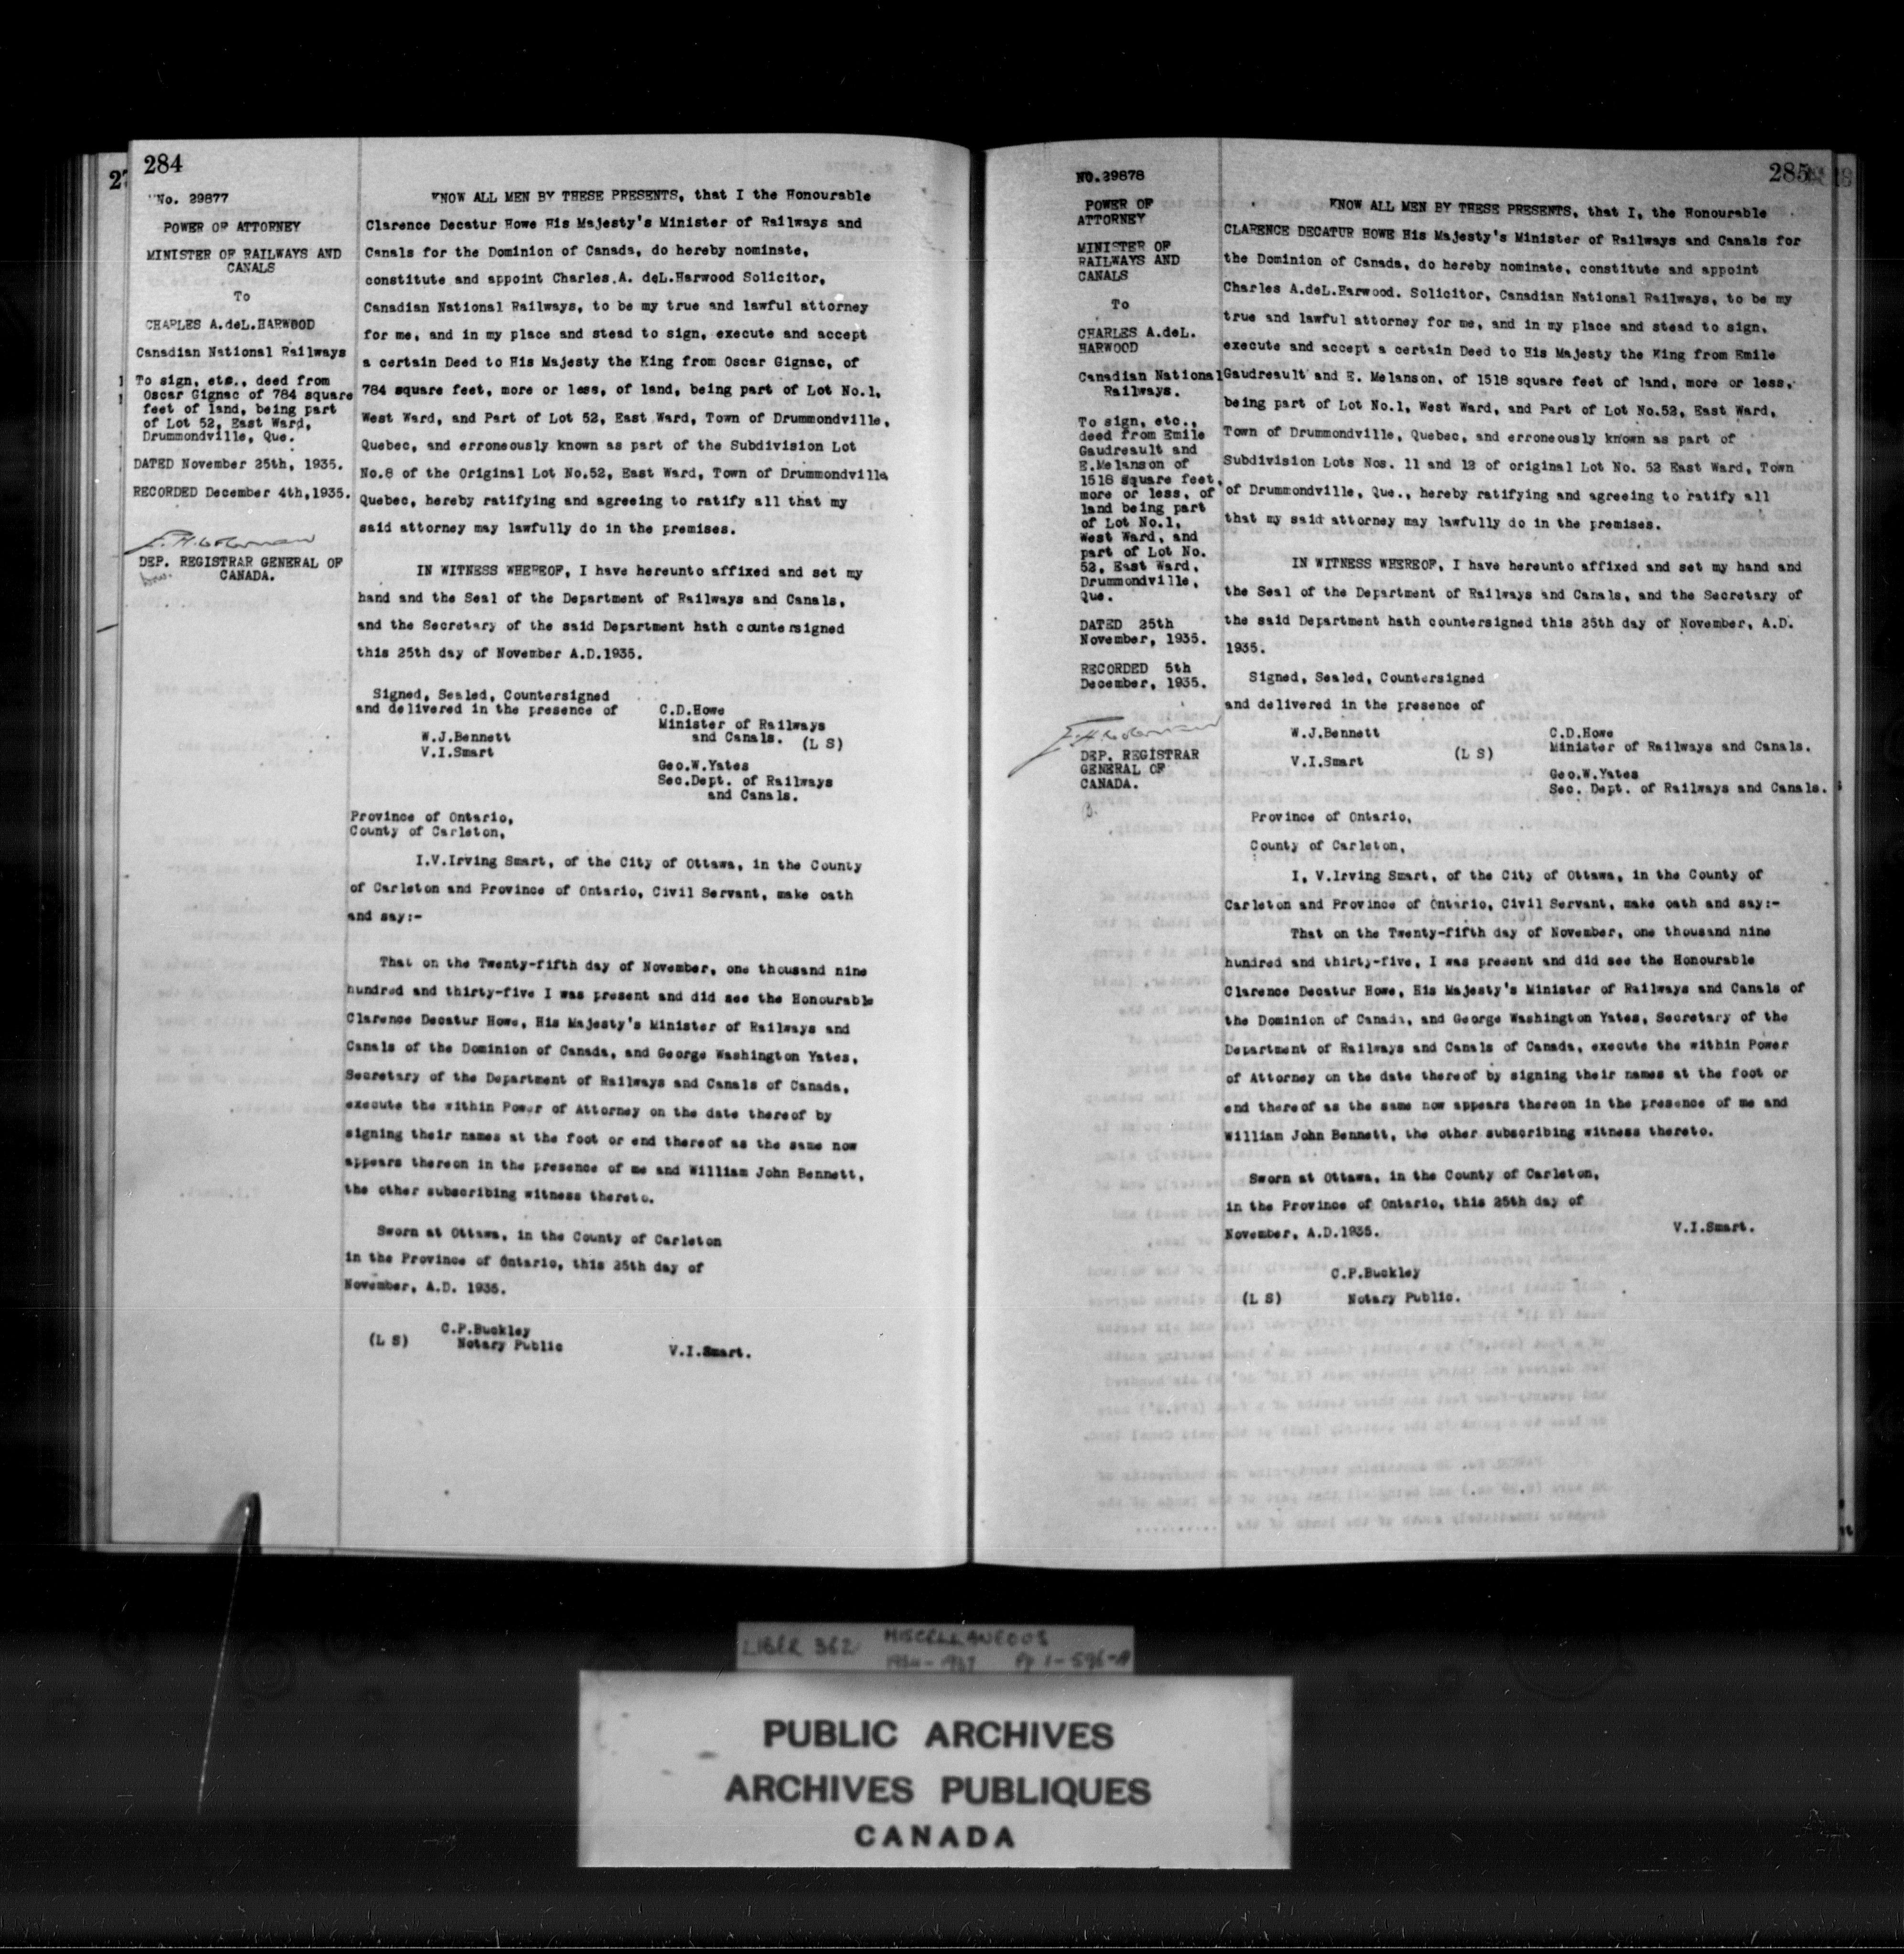 284
No. 29877
POWER OF ATTORNEY
MINISTER OF RAILWAYS AND
CANALS
To
CHARLES A.deL.HARWOOD
Canadian National Railways
To sign, etc., deed from
Oscar Gignac of 784 square
feet of land, being part
of Lot 52, East Ward,
Drummondville, Que.
DATED November 25th, 1935.
RECORDED December 4th,1935.
DEP. REGISTRAR GENERAL OF
CANADA.
KNOW ALL MEN BY THESE PRESENTS, that I the Honourable
Clarence Decatur Howe His Majesty's Minister of Railways and
Canals for the Dominion of Canada, do hereby nominate,
constitute and appoint Charles.A. deL.Harwood Solicitor,
Canadian National Railways, to be my true and lawful attorney
for me, and in my place and stead to sign, execute and accept
a certain Deed to His Majesty the King from Oscar Gignac, of
784 square feet, more or less, of land, being part of Lot No.1,
West Ward, and Part of Lot 52, East Ward, Town of Drummondville,
Quebec, and erroneously known as part of the Subdivision Lot
No.8 of the Original Lot No.52, East Ward, Town of Drummondville
Quebec, hereby ratifying and agreeing to ratify all that my
said attorney may lawfully do in the premises.
IN WITNESS WHEREOF, I have hereunto affixed and set my
hand and the Seal of the Department of Railways and Canals,
and the Secretary of the said Department hath countersigned
this 25th day of November A.D.1935.
Signed, Sealed, Countersigned
and delivered in the presence of
W.J.Bennett
V.I.Smart
C.D.Howe
Minister of Railways
and Canals. (L S)
Geo.W.Yates
Sec.Dept. of Railways
and Canals.
Province of Ontario,
County of Carleton,
I.V.Irving Smart, of the City of Ottawa, in the County
of Carleton and Province of Ontario, Civil Servant, make oath
and say:-
That on the Twenty-fifth day of November, one thousand nine
hundred and thirty-five I was present and did see the Honourable
Clarence Decatur Howe, His Majesty's Minister of Railways and
Canals of the Dominion of Canada, and George Washington Yates,
Secretary of the Department of Railways and Canals of Canada,
execute the within Power of Attorney on the date thereof by
signing their names at the foot or end thereof as the same now
appears thereon in the presence of me and William John Bennett,
the other subscribing witness thereto.
Sworn at Ottawa, in the County of Carleton
in the Province of Ontario, this 25th day of
November, A.D. 1935.
C.P.Buckley
(L S) Notary Public
V.I.Smart.
285
NO.29878
POWER OF
ATTORNEY
MINISTER OF
RAILWAYS AND
CANALS
To
CHARLES A.deL.
HARWOOD
Canadian National
Railways.
To sign, etc.,
deed from Emile
Gaudreault and
E.Melanson of
1518 square feet,
more or less, of
land being part
of Lot No.1,
West Ward, and
part of Lot No.
52, East Ward,
Drummondville,
Que.
DATED 25th
November, 1935.
RECORDED 5th
December, 1935.
DEP. REGISTRAR
GENERAL OF
CANADA.
KNOW ALL MEN BY THESE PRESENTS, that I, the Honourable
CLARENCE DECATUR HOWE His Majesty's Minister of Railways and Canals for
the Dominion of Canada, do hereby nominate, constitute and appoint
Charles A.deL.Harwood. Solicitor, Canadian National Railways, to be my
true and lawful attorney for me, and in my place and stead to sign,
execute and accept a certain Deed to His Majesty the King from Emile
Gaudreault and E. Melanson, of 1518 square feet of land, more or less,
being part of Lot No.1, West Ward, and Part of Lot No.52, East Ward,
Town of Drummondville, Quebec, and erroneously known as part of
Subdivision Lots Nos. 11 and 12 of original Lot No. 52 East Ward, Town
of Drummondville, Que., hereby ratifying and agreeing to ratify all
that my said attorney may lawfully do in the premises.
IN WITNESS WHEREOF, I have hereunto affixed and set my hand and
the Seal of the Department of Railways and Canals, and the Secretary of
the said Department hath countersigned this 25th day of November, A.D.
1935.
Signed, Sealed, Countersigned
and delivered in the presence of
W.J.Bennett
V.I.Smart
(L S)
C.D.Howe
Minister of Railways and Canals.
Geo.W.Yates
Sec. Dept. of Railways and Canals.
Province of Ontario,
County of Carleton,
I, V.Irving Smart, of the City of Ottawa, in the County of
Carleton and Province of Ontario, Civil Servant, make oath and say:-
That on the Twenty-fifth day of November, one thousand nine
hundred and thirty-five, I was present and did see the Honourable
Clarence Decatur Howe, His Majesty's Minister of Railways and Canals of
the Dominion of Canada, and George Washington Yates, Secretary of the
Department of Railways and Canals of Canada, execute the within Power
of Attorney on the date thereof by signing their names at the foot or
end thereof as the same now appears thereon in the presence of me and
William John Bennett, the other subscribing witness thereto.
Sworn at Ottawa, in the County of Carleton,
in the Province of Ontario, this 25th day of
November, A.D.1935.
V.I.Smart.
C.P.Buckley
(L S) Notary Public.
LIBER 362 MISCELLANEOUS
1934-1937 Pp 1-596-A
PUBLIC ARCHIVES
ARCHIVES PUBLIQUES
CANADA